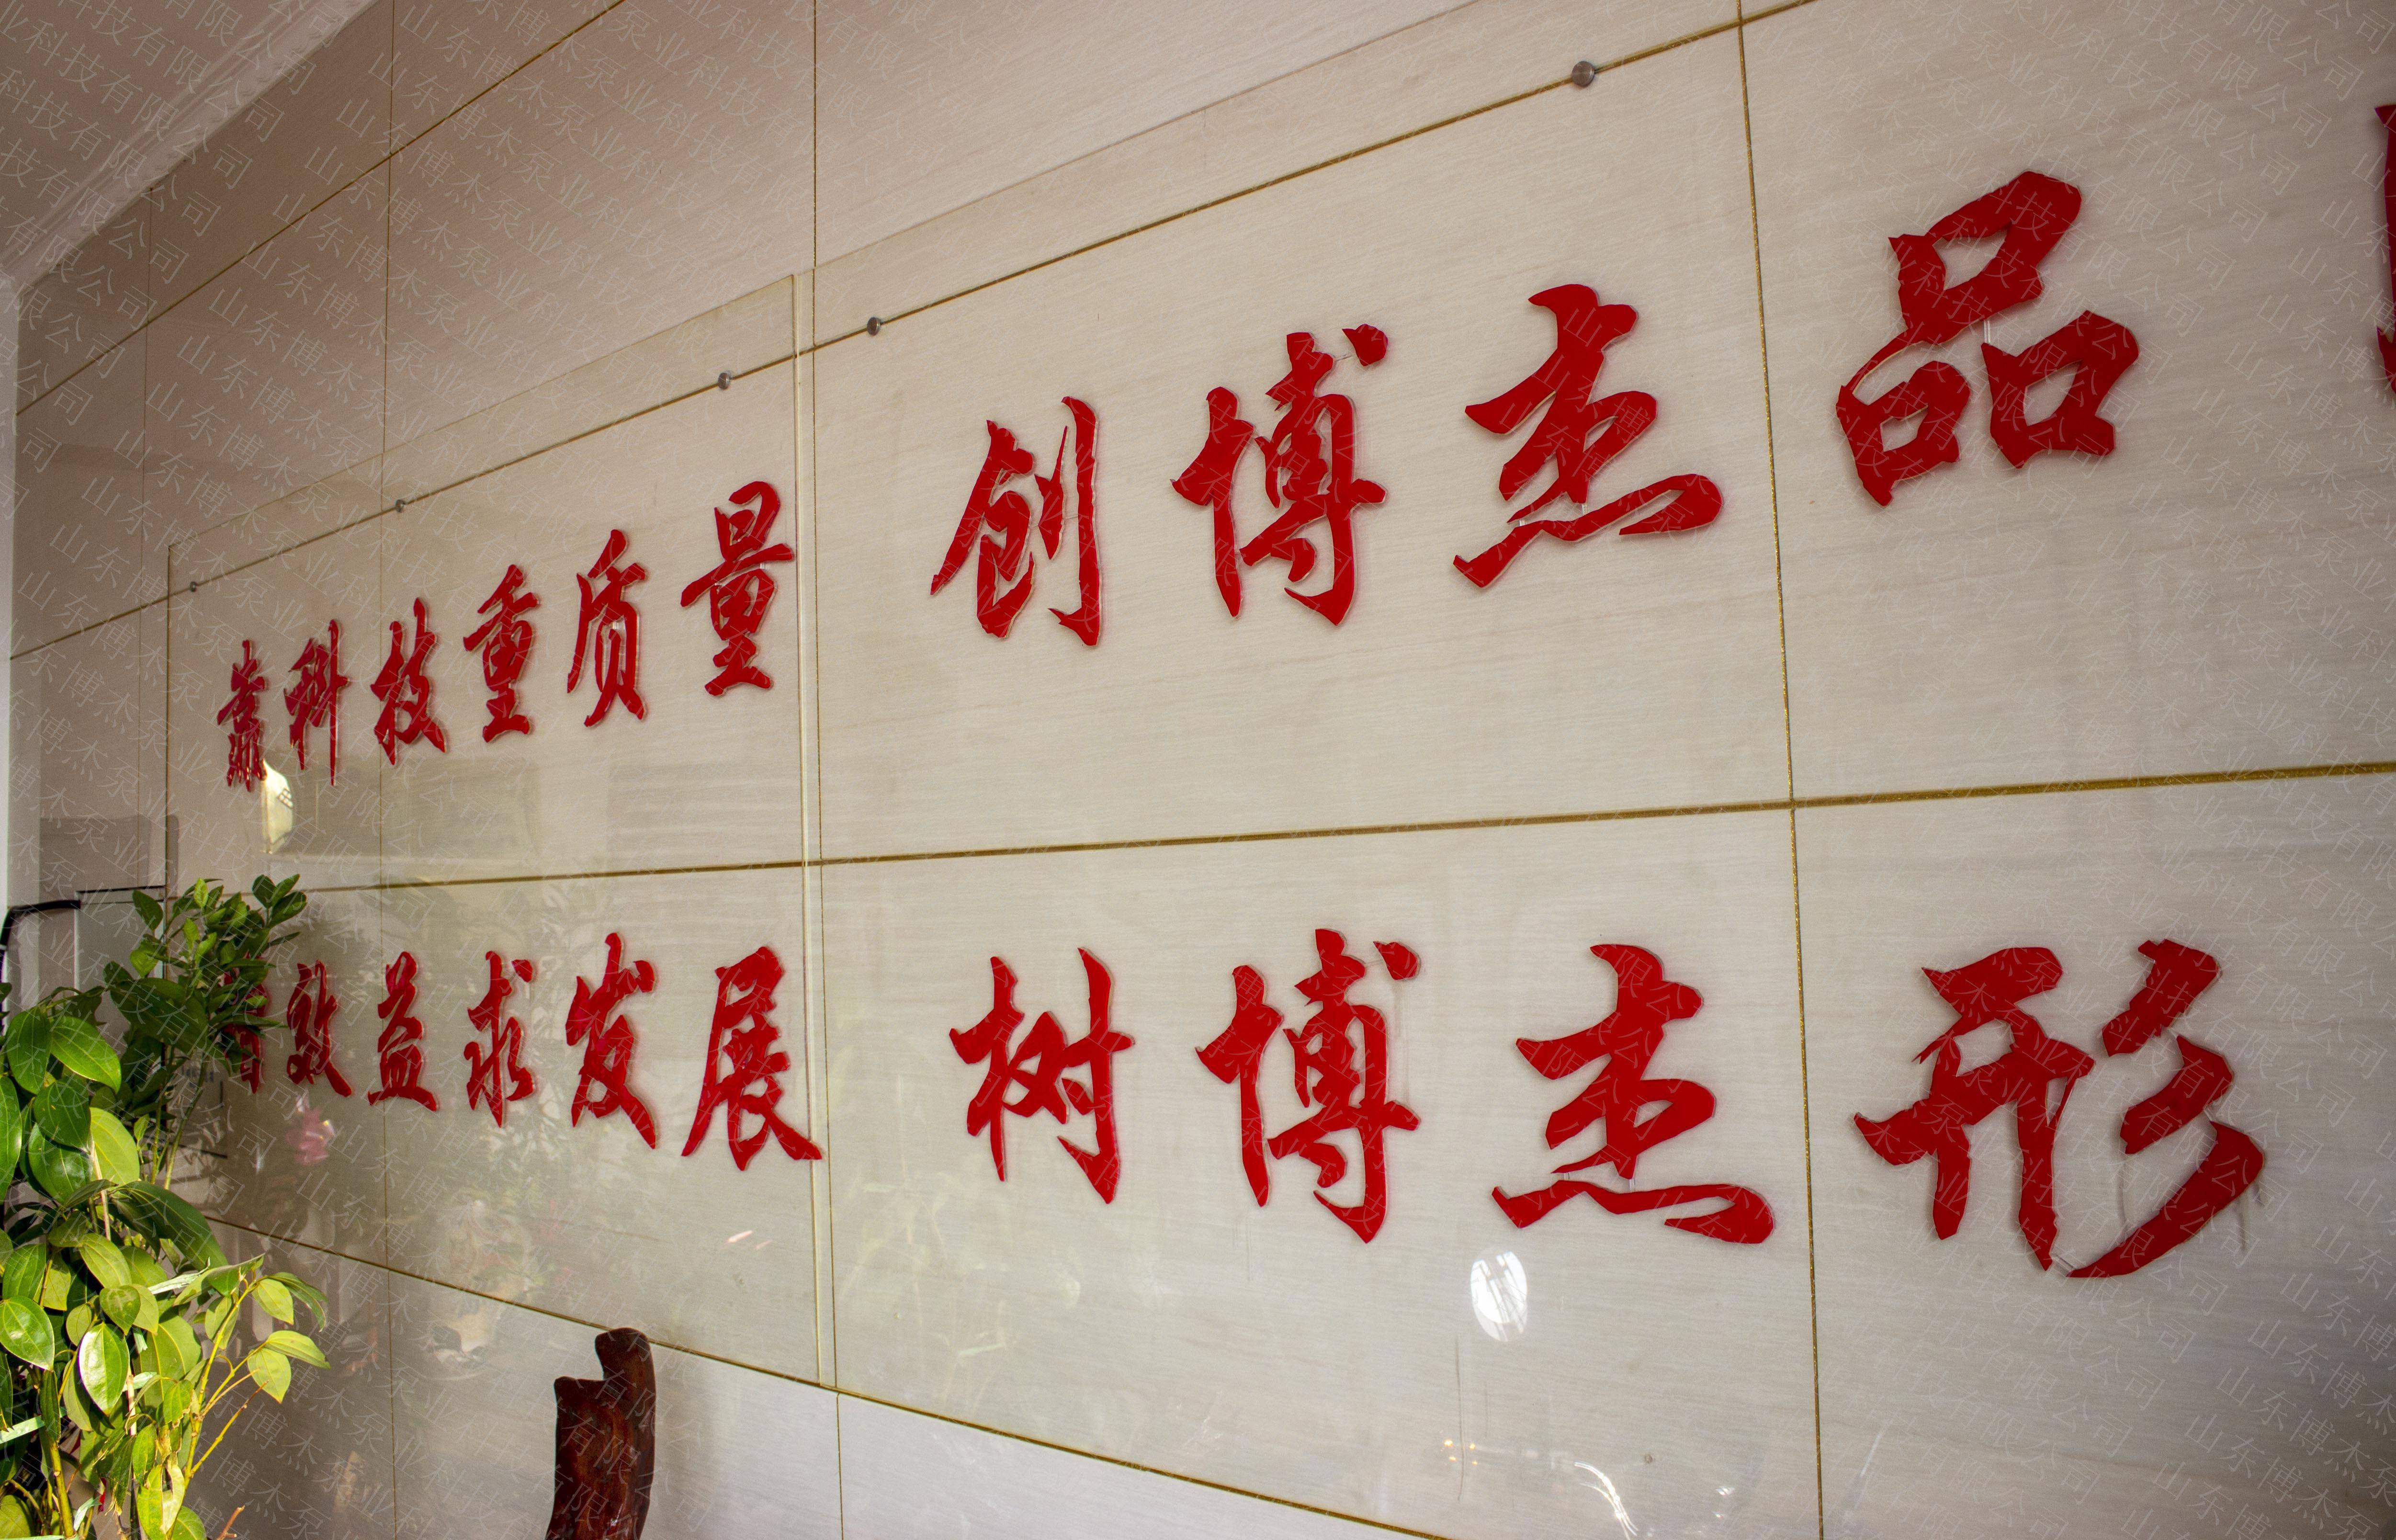 靠科技重质量 创博杰品
效益求发展 树博杰形
山东博杰泵业科技有限公司